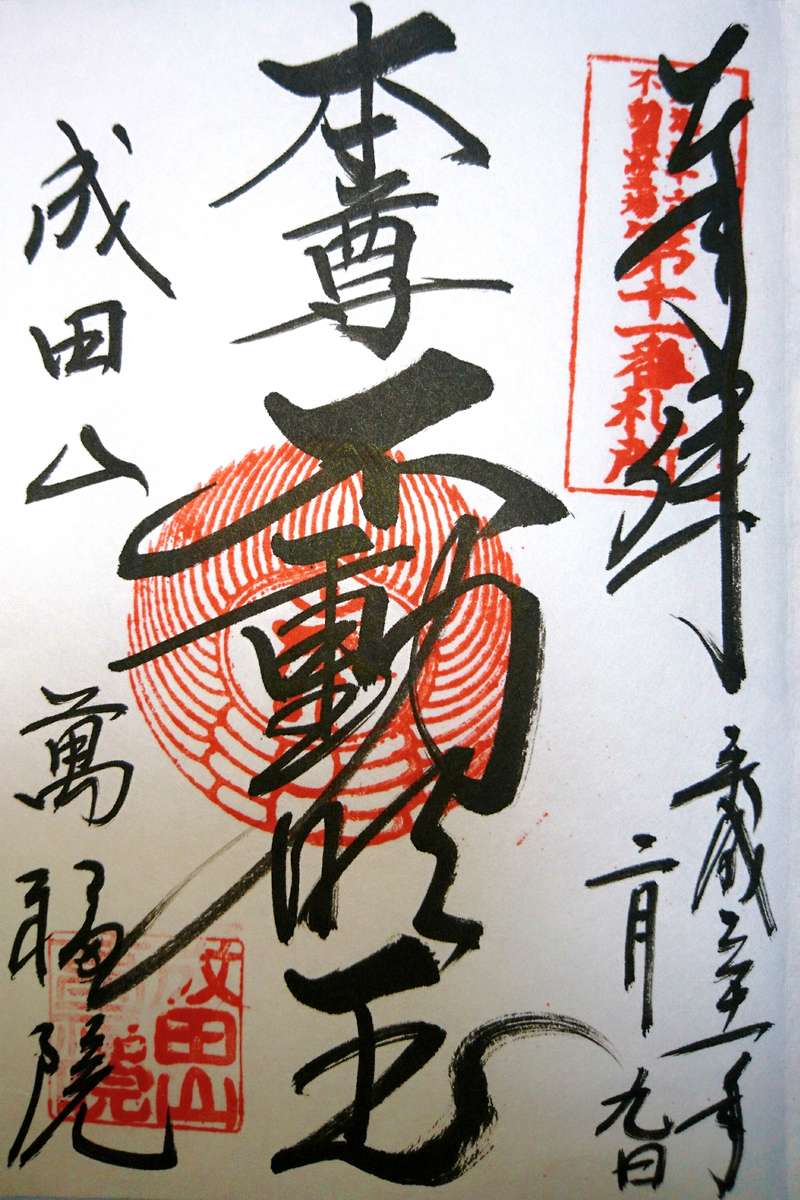 奉拝
第十一番札所
平成三十一年
二月九日
本尊
不動明王
成田山
萬福院
成田山
萬福院